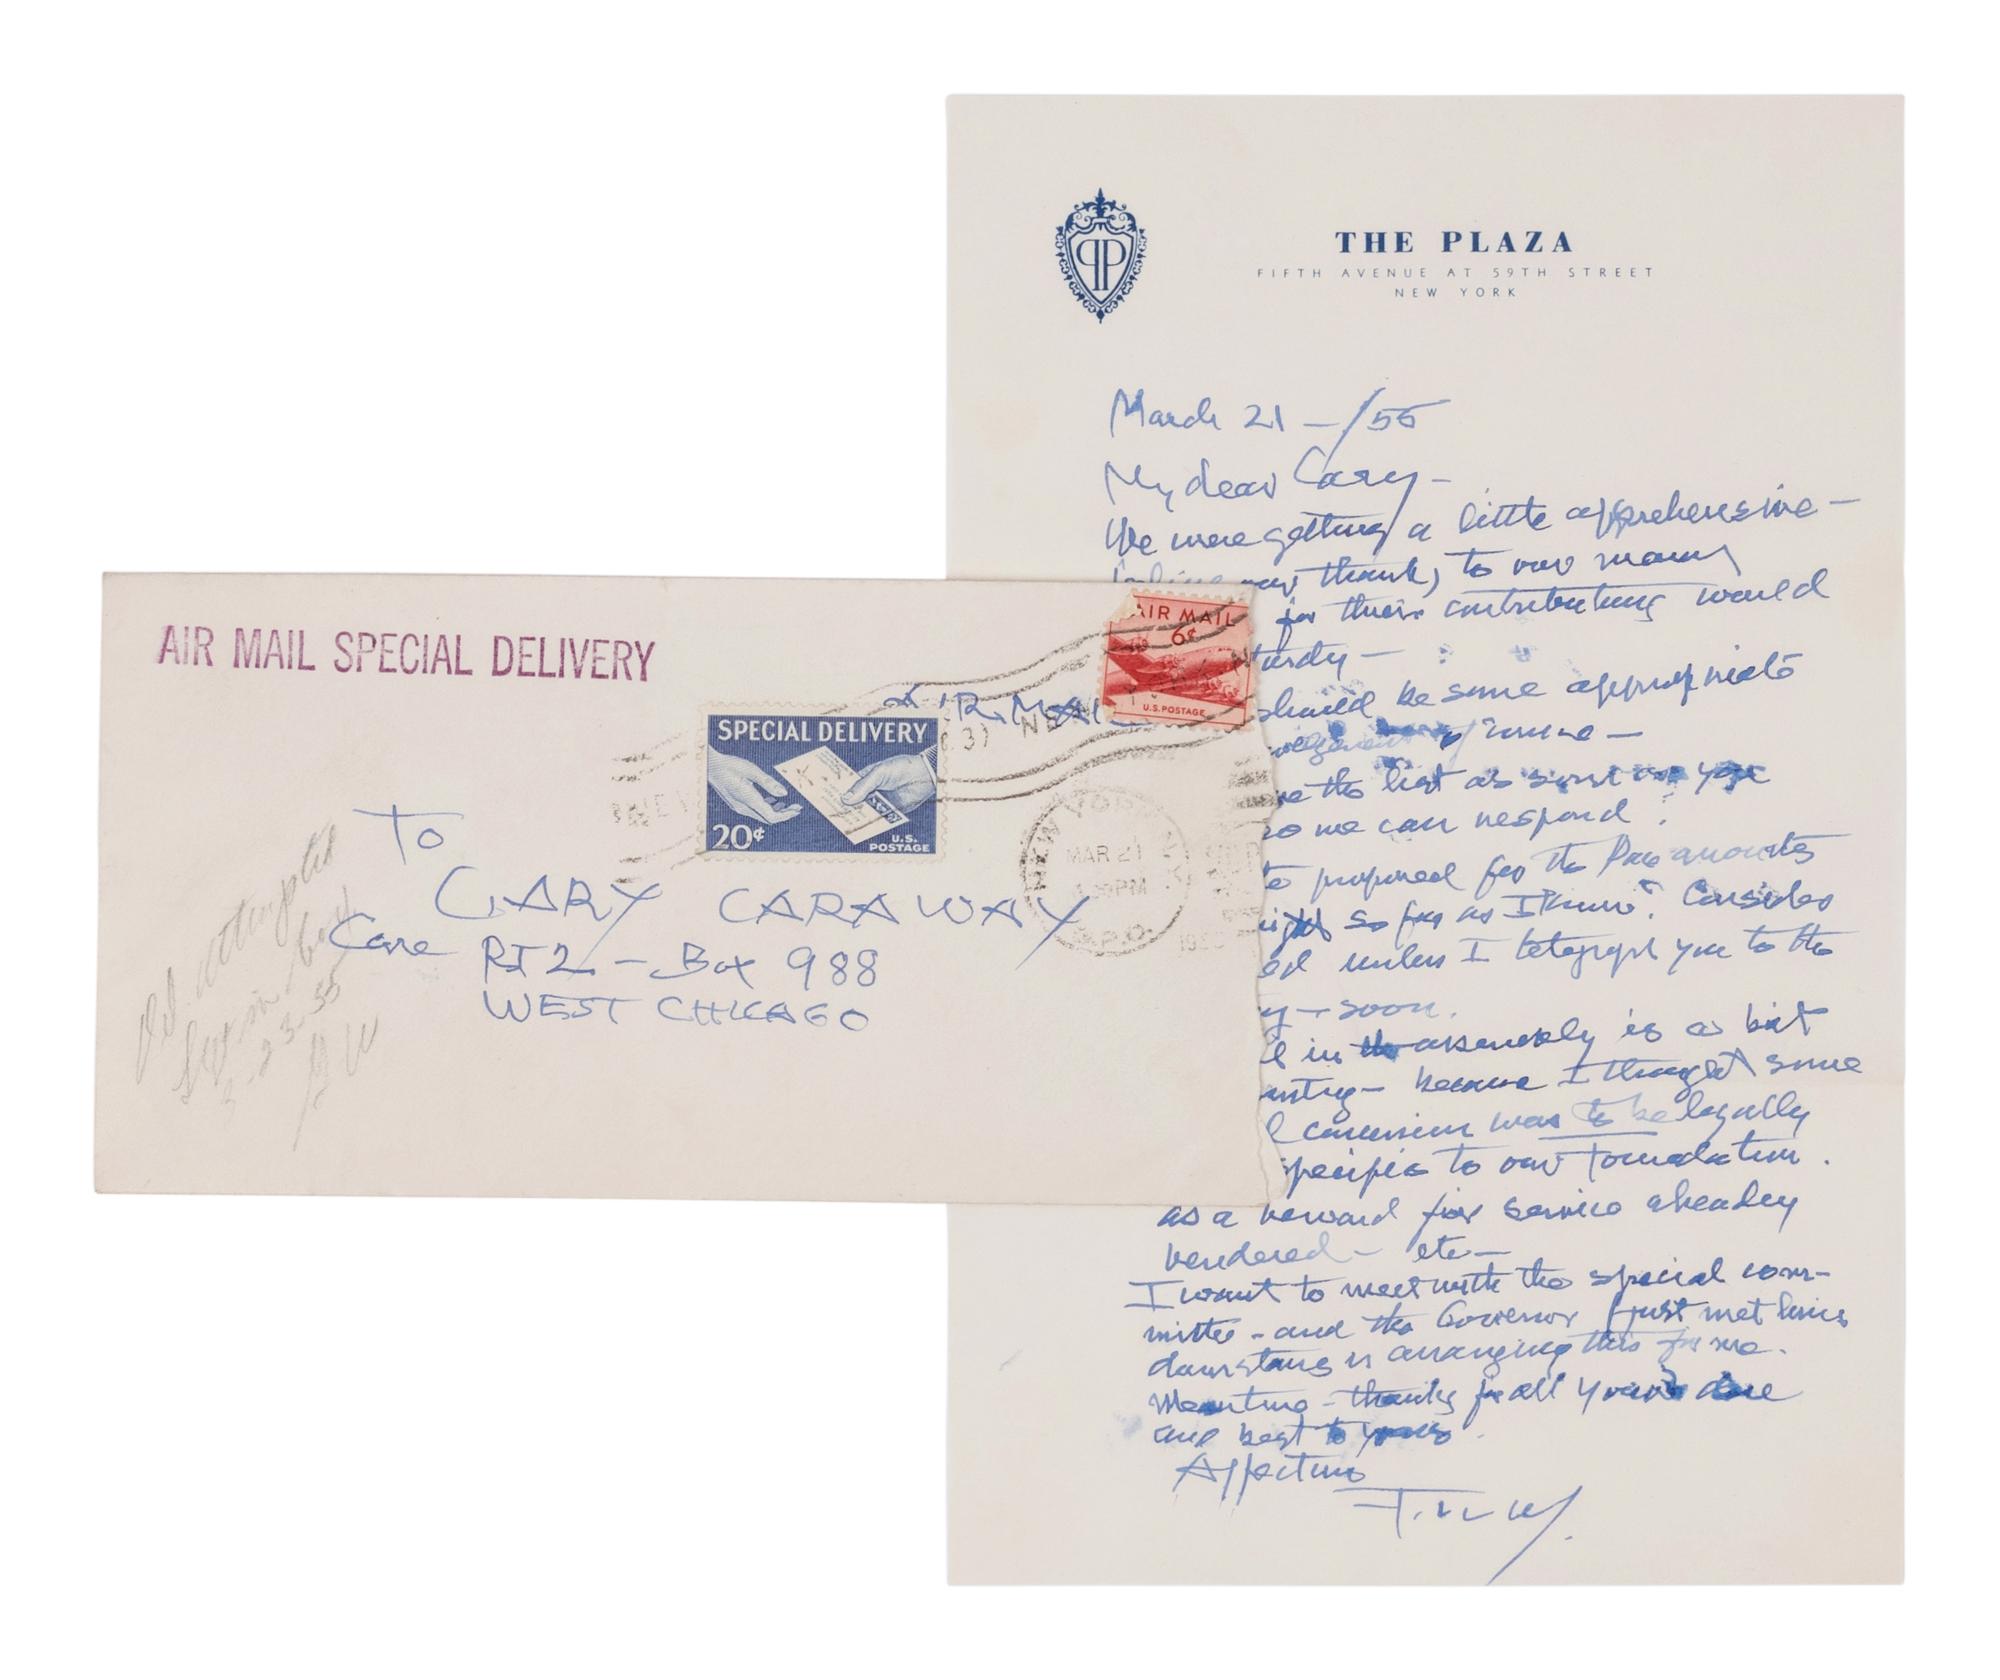 THE PLAZA
FIFTH AVENUE AT 59TH STREET
NEW YORK
March 21 — /55
My dear Cary —
We were getting a little apprehensive —
our thanks to our many
for their contributing would
tardy —
should be some appropriate
of mine —
the list as soon as you
so we can respond.
proposed for the
so far as I know. Consider
unless I telegraph you to the
— soon.
in assembly is a bit
— because I thought some
concession was to be legally
specific to our Foundation.
as a reward for service already
rendered — etc —
I want to meet with the special com-
mittee - and the Governor I just met here
downstairs is arranging this for me.
Meantime - thanks for all you've done
and best to yours.
Affection
F.LL.W.
AIR MAIL SPECIAL DELIVERY
AIR MAIL
6¢
U.S. POSTAGE
AIR MAIL
SPECIAL DELIVERY
20¢
U.S.
POSTAGE
NEW YORK, N.Y.
MAR 21
PM
To
CARY CARAWAY
Care RT 2 — Box 988
WEST CHICAGO
Del. attempted
3-23-55